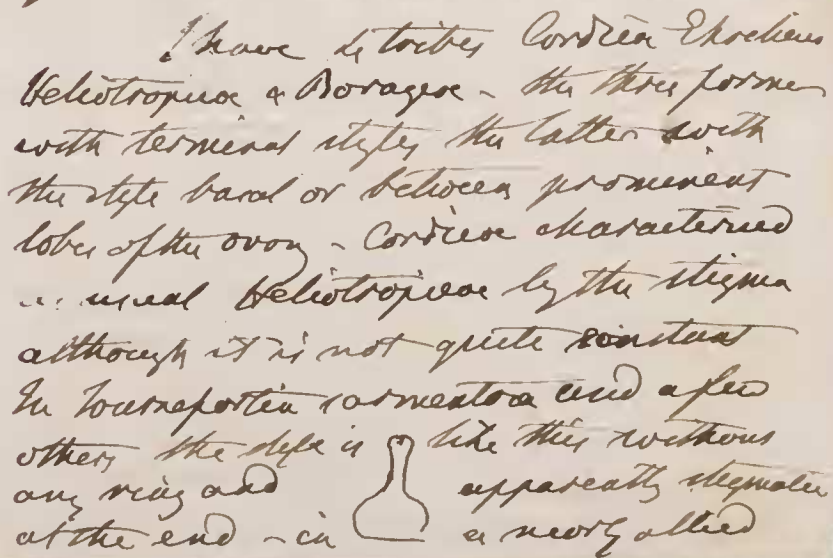 I have 4 tribes Cordieæ Ehretieæ
Heliotropieæ & Borageæ – the three former
with terminal styles the latter with
the style basal or between prominent
lobes of the ovary – Cordieæ characterised
as usual Heliotropieæ by the stigma
although it is not quite constant
In Tournefortia sarmentosa and a few
others the style is like this without
any ring and apparently stigmatic
at the end – in a nearly allied